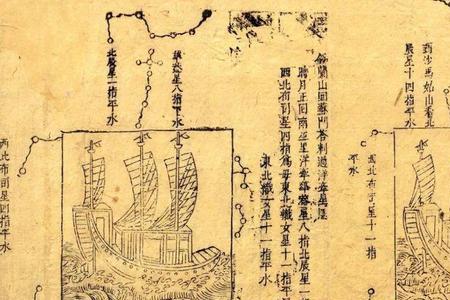 到沙馬姑山看北
辰星十四指平水
西北布司星十一指
平水
錫蘭山回蘇門答剌過洋牽星圖
時月正回南巫里洋牽華蓋星八指北辰星一
西北布司星四指為母東北織女星十一指平
東北織女星十一指平水
華蓋星八指平水
北辰星一指平水
西北布司星四指平水